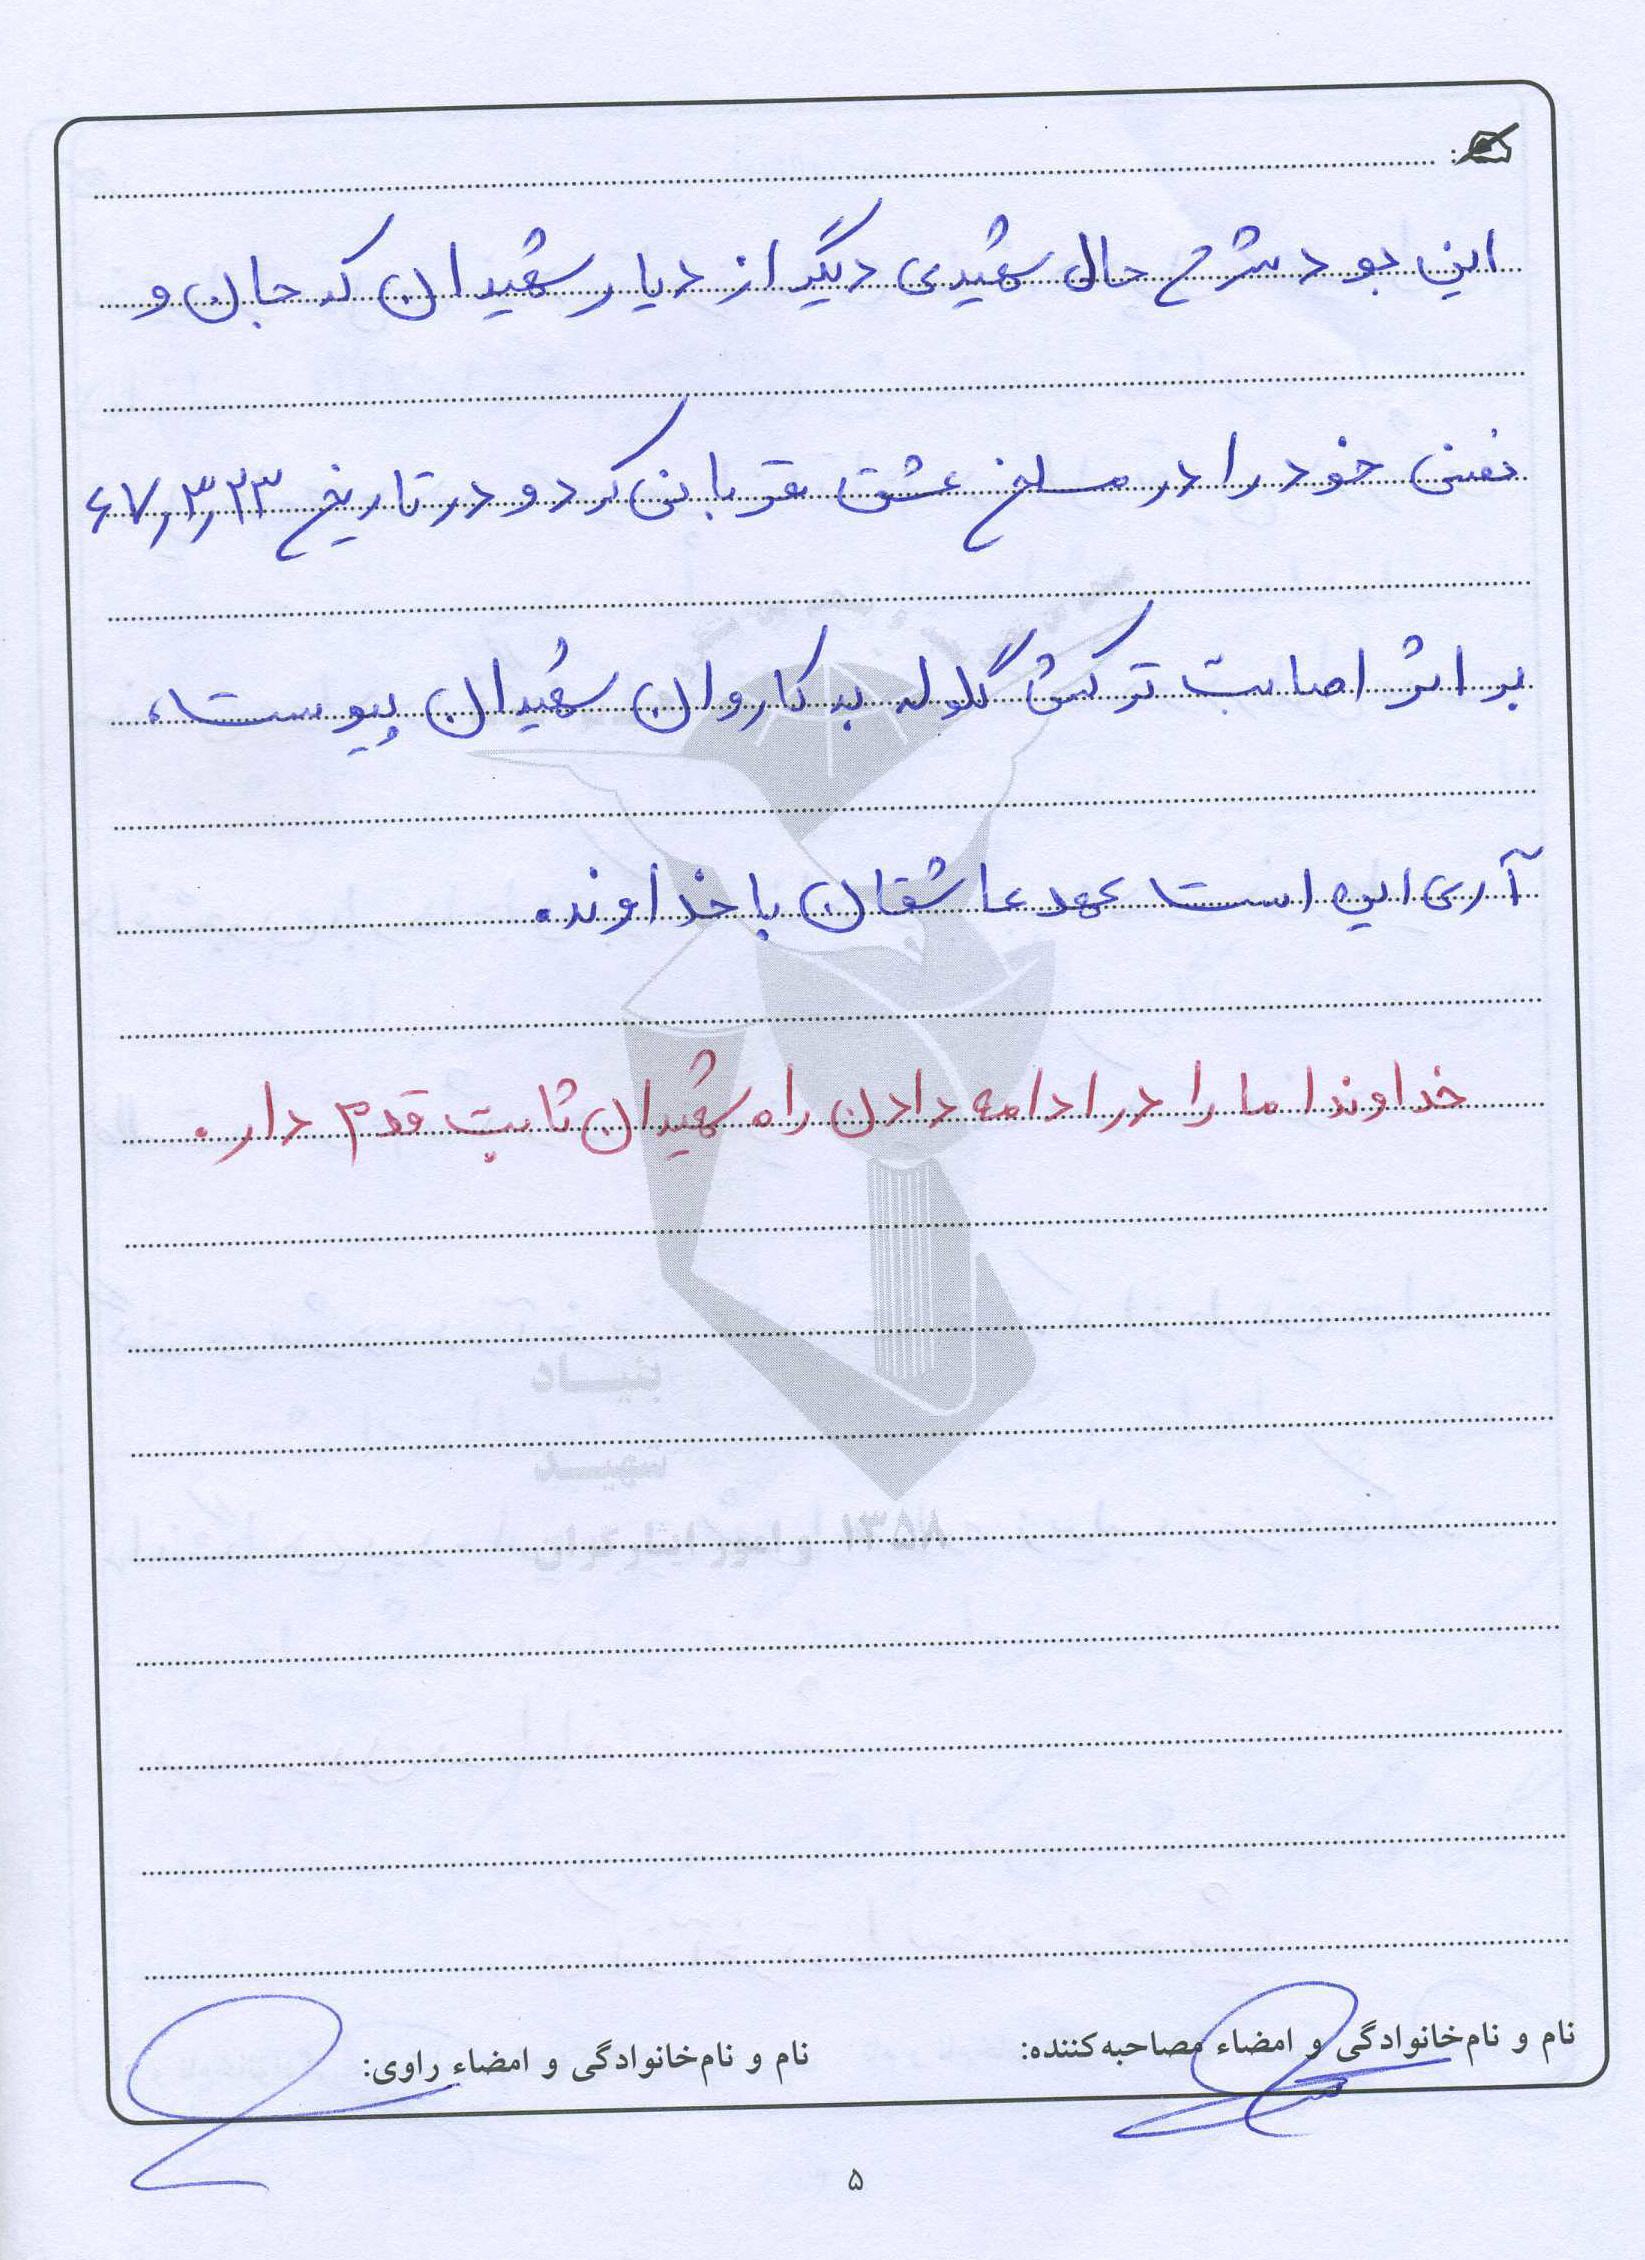 این بود شرح حال شهیدی دیگر از دیار شهیدان که جان و
نفس خود را در مسلخ عشق قربانی کرد و در تاریخ ۶۷,۳,۲۳
بر اثر اصابت ترکش گلوله به کاروان شهیدان پیوست،
آری این است عهد عاشقان با خداوند.
خداوندا ما را در ادامه دادن راه شهیدان ثابت قدم دار.
بنیاد
شهید
و امور ایثارگران ۱۳۵۸
نام و نام‌خانوادگی و امضاء مصاحبه‌کننده:
نام و نام‌خانوادگی و امضاء راوی:
۵